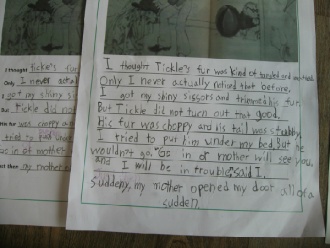 I thought Tickle's fur was kind of
Only I never actually noticed that before,
I got my shiny sissors and trimmed his fur.
But Tickle did not turn out that good.
His fur was choppy and its tail was stubby.
I tried to put him under my bed. But he
wouldn't go. "Gs in of mother will see you,
and I will be in trouble," said I.
Suddeny, my mother opened my door all of a
sudden.
I thought Tickle's fur
Only I never actu
I got my shiny s
But Tickle did no
fur was choppy a
tried to put
my mother